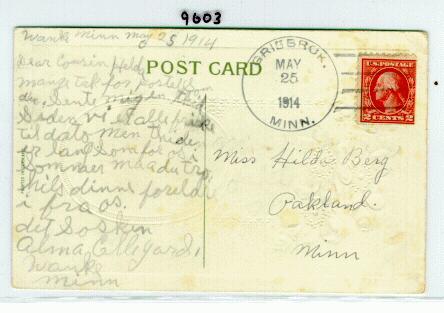 9603
Wanke Minn May 25 1914
Dear Cousin Helda
mange tak for postell
du sente mig en
siden vi er alle friske
til dato men
er langsom for os
sommer maa du tro
hils dinne forelder
i fra os.
dit Soskin
Alma
Wanke
Minn
POST CARD
MAY
25
1914
MINN.
U.S. POSTAGE
2 CENTS 2
Miss Hilda Berg
Oakland.
Minn